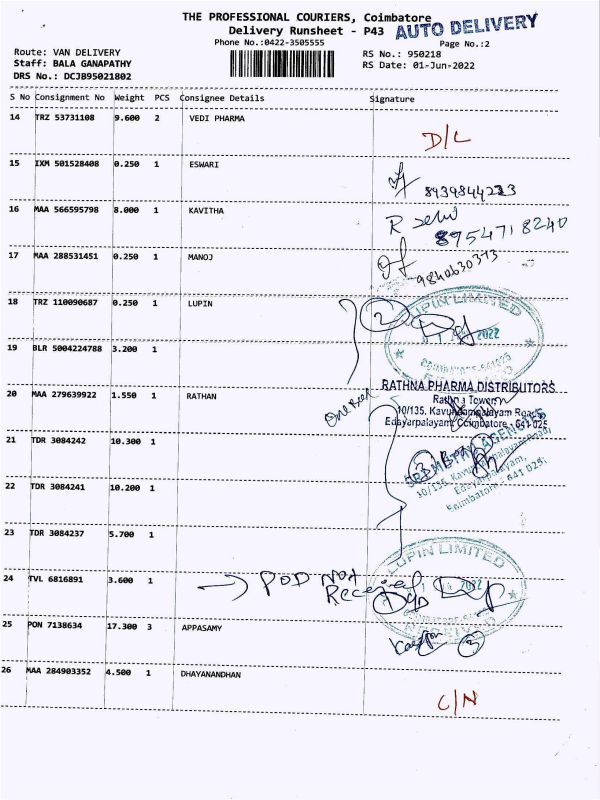 THE PROFESSIONAL COURIERS, Coimbatore
AUTO DELIVERY
Delivery Runsheet - P43
Phone No.:0422-3505555
Page No.:2
Route: VAN DELIVERY
RS No.: 950218
Staff: BALA GANAPATHY
RS Date: 01-Jun-2022
DRS No.: DCJB95021802
S No Consignment No Weight PCS Consignee Details Signature
14 TRZ 53731108 9.600 2 VEDI PHARMA
D/L
15 IXM 501528408 0.250 1 ESWARI
8939844223
16 MAA 566595798 8.000 1 KAVITHA
R Selvi
8954718240
17 MAA 288531451 0.250 1 MANOJ
9840630373
18 TRZ 110090687 0.250 1 LUPIN
2
LUPIN LIMITED
2022
COIMBATORE-641025
19 BLR 5004224788 3.200 1
20 MAA 279639922 1.550 1 RATHAN
RATHNA PHARMA DISTRIBUTORS
Rathna Towers
10/135, Kavundampalayam Road
Edayarpalayam, Coimbatore - 641 025
21 TDR 3084242 10.300 1
AGENCIES
10/135, Kavundampalayam Road,
Edayarpalayam,
Coimbatore - 641 025.
22 TDR 3084241 10.200 1
23 TDR 3084237 5.700 1
LUPIN LIMITED
24 TVL 6816891 3.600 1
POD Not
Received
2022
RECEIVED
25 PON 7138634 17.300 3 APPASAMY
3
26 MAA 284903352 4.500 1 DHAYANANDHAN
C/N